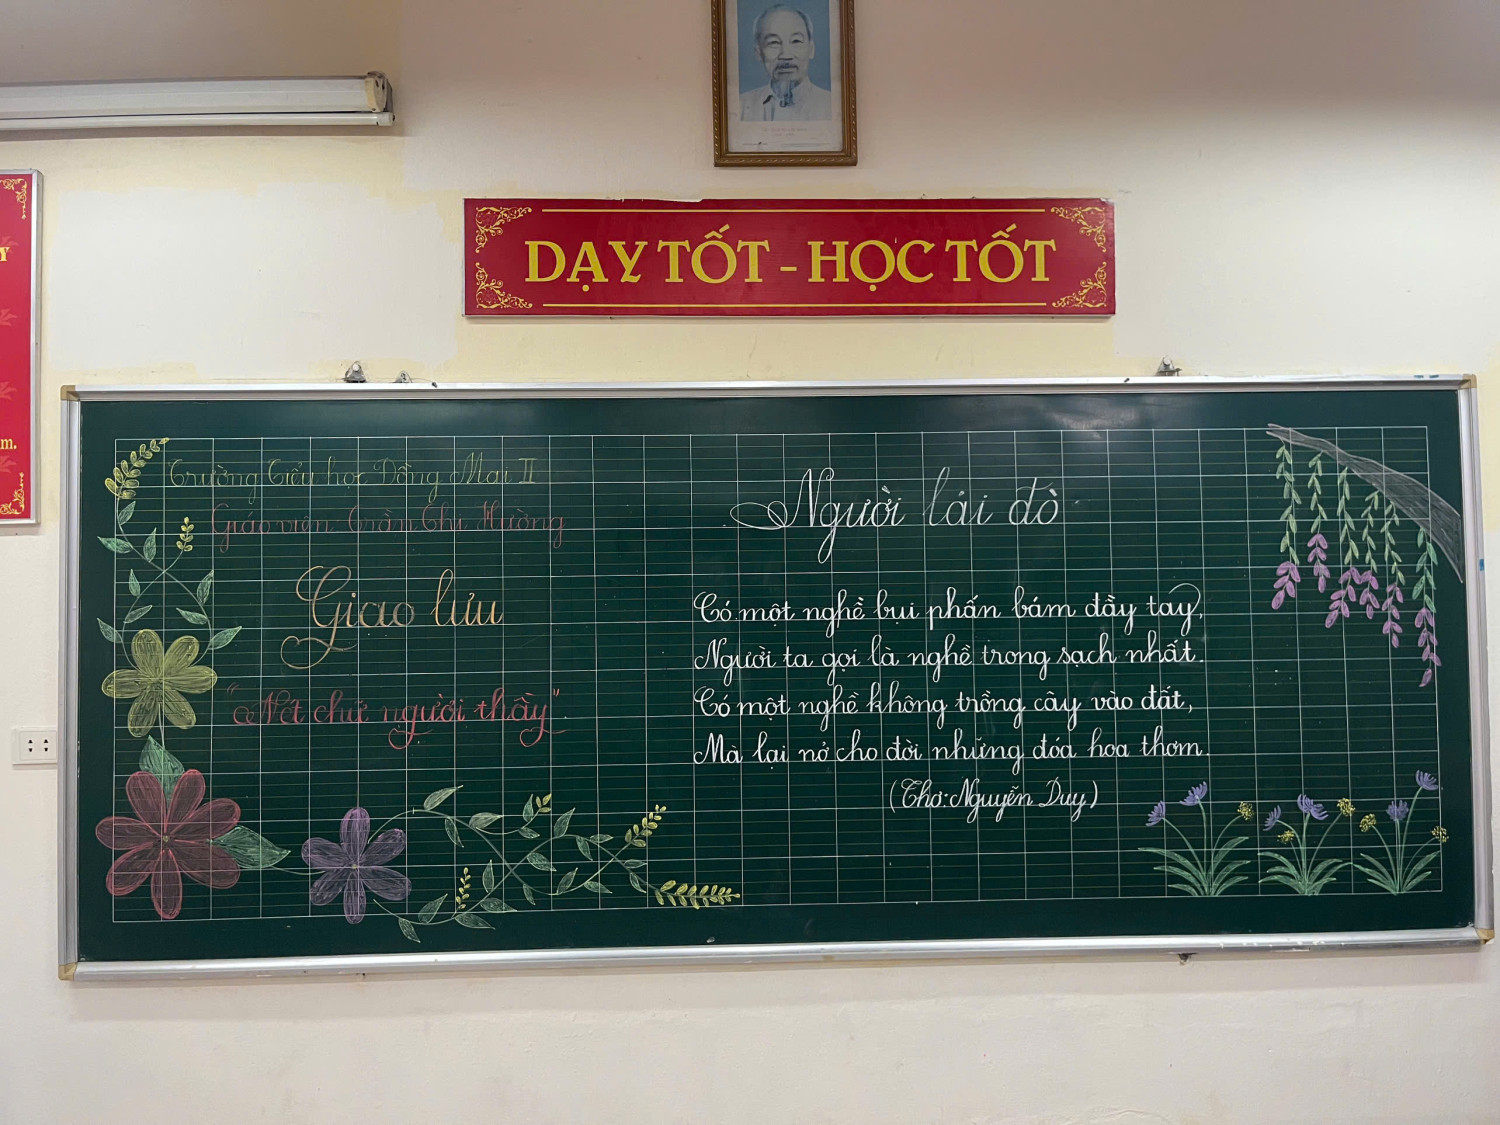 DẠY TỐT - HỌC TỐT
Y
m.
Trường Tiểu học Đồng Mai II
Giáo viên Trần Thị Hường
Giao lưu
"Nét chữ người thầy".
Người lái đò
Có một nghề bụi phấn bám đầy tay,
Người ta gọi là nghề trong sạch nhất.
Có một nghề không trồng cây vào đất,
Mà lại nở cho đời những đóa hoa thơm.
(Thơ: Nguyễn Duy)